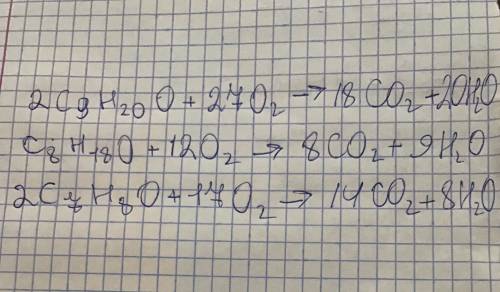 2C₉H₂₀O + 27O₂ → 18CO₂ + 20H₂O
C₈H₁₈O + 12O₂ → 8CO₂ + 9H₂O
2C₇H₈O + 17O₂ → 14CO₂ + 8H₂O